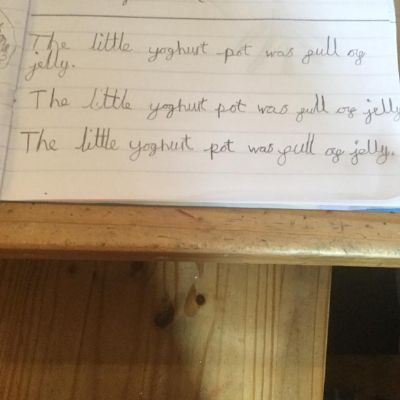 The little yoghurt pot was full of
jelly.
The little yoghurt pot was full of jelly
The little yoghurt pot was full of jelly.